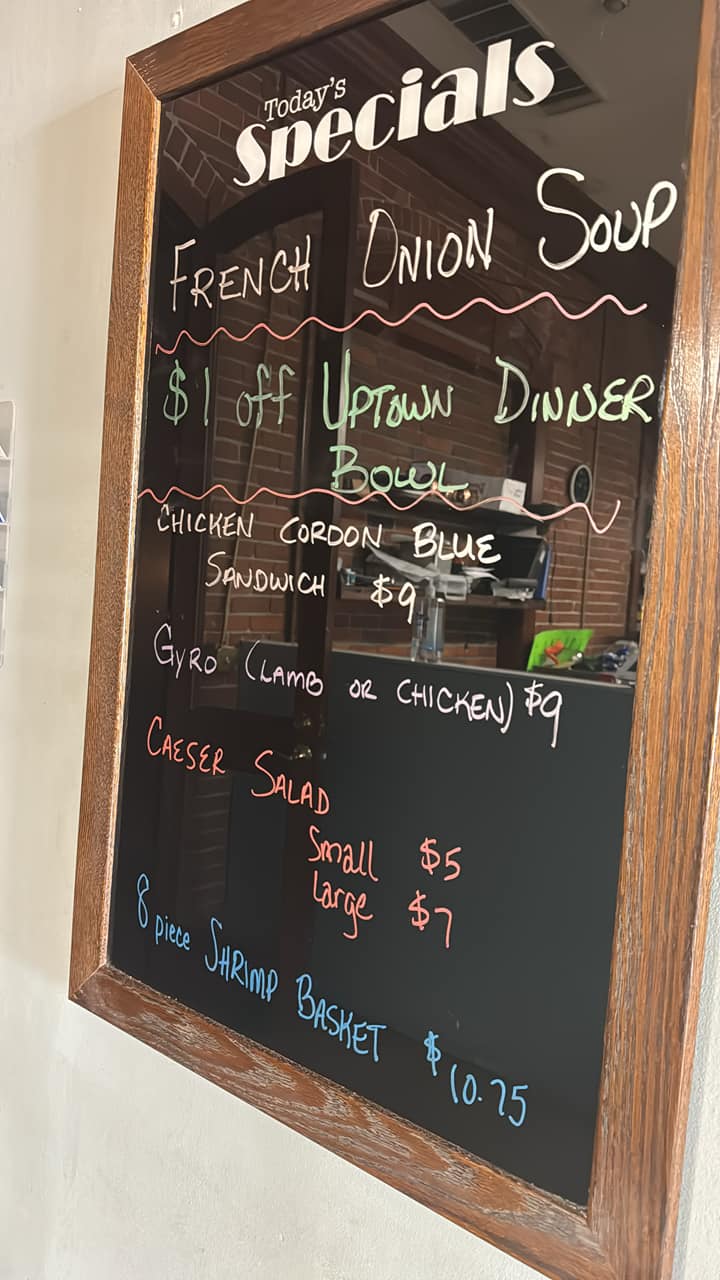 Today's
Specials
FRENCH ONION SOUP
$1 off UPTOWN DINNER
BOWL
CHICKEN CORDON BLUE
SANDWICH $9
GYRO (LAMB OR CHICKEN) $9
CAESER SALAD
Small $5
Large $7
8 piece SHRIMP BASKET $10.75